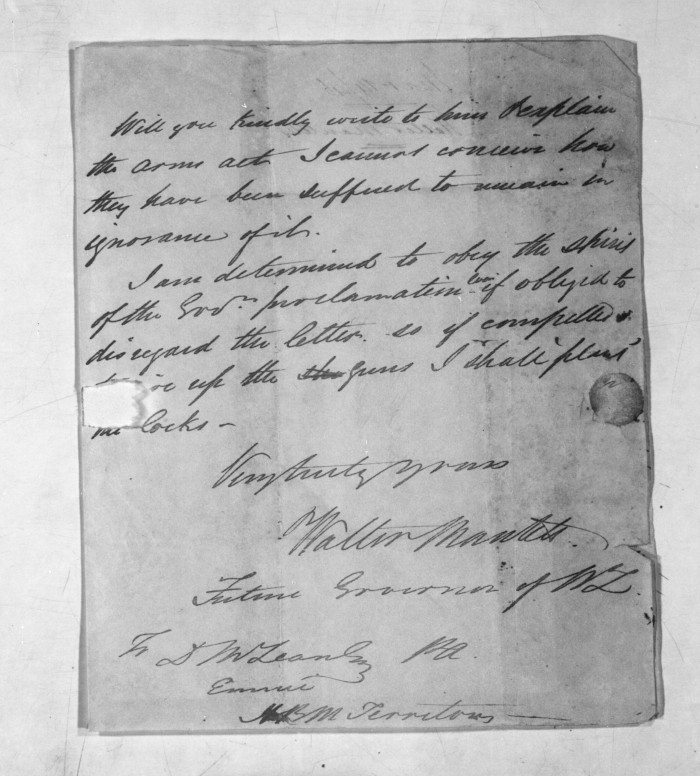 Will you kindly write to him & explain
the arms act I cannot conceive how
they have been suffered to remain in
ignorance of it.
I am determined to obey the spirit
of the Govr. proclamation even if obliged to
disregard the letter. so if compelled
up the guns I "shall plant"
the locks -
Very truly yours
Walter Mantell.
Future Governor of N.Z.
To D McLean Esq PA.
H B M Territories